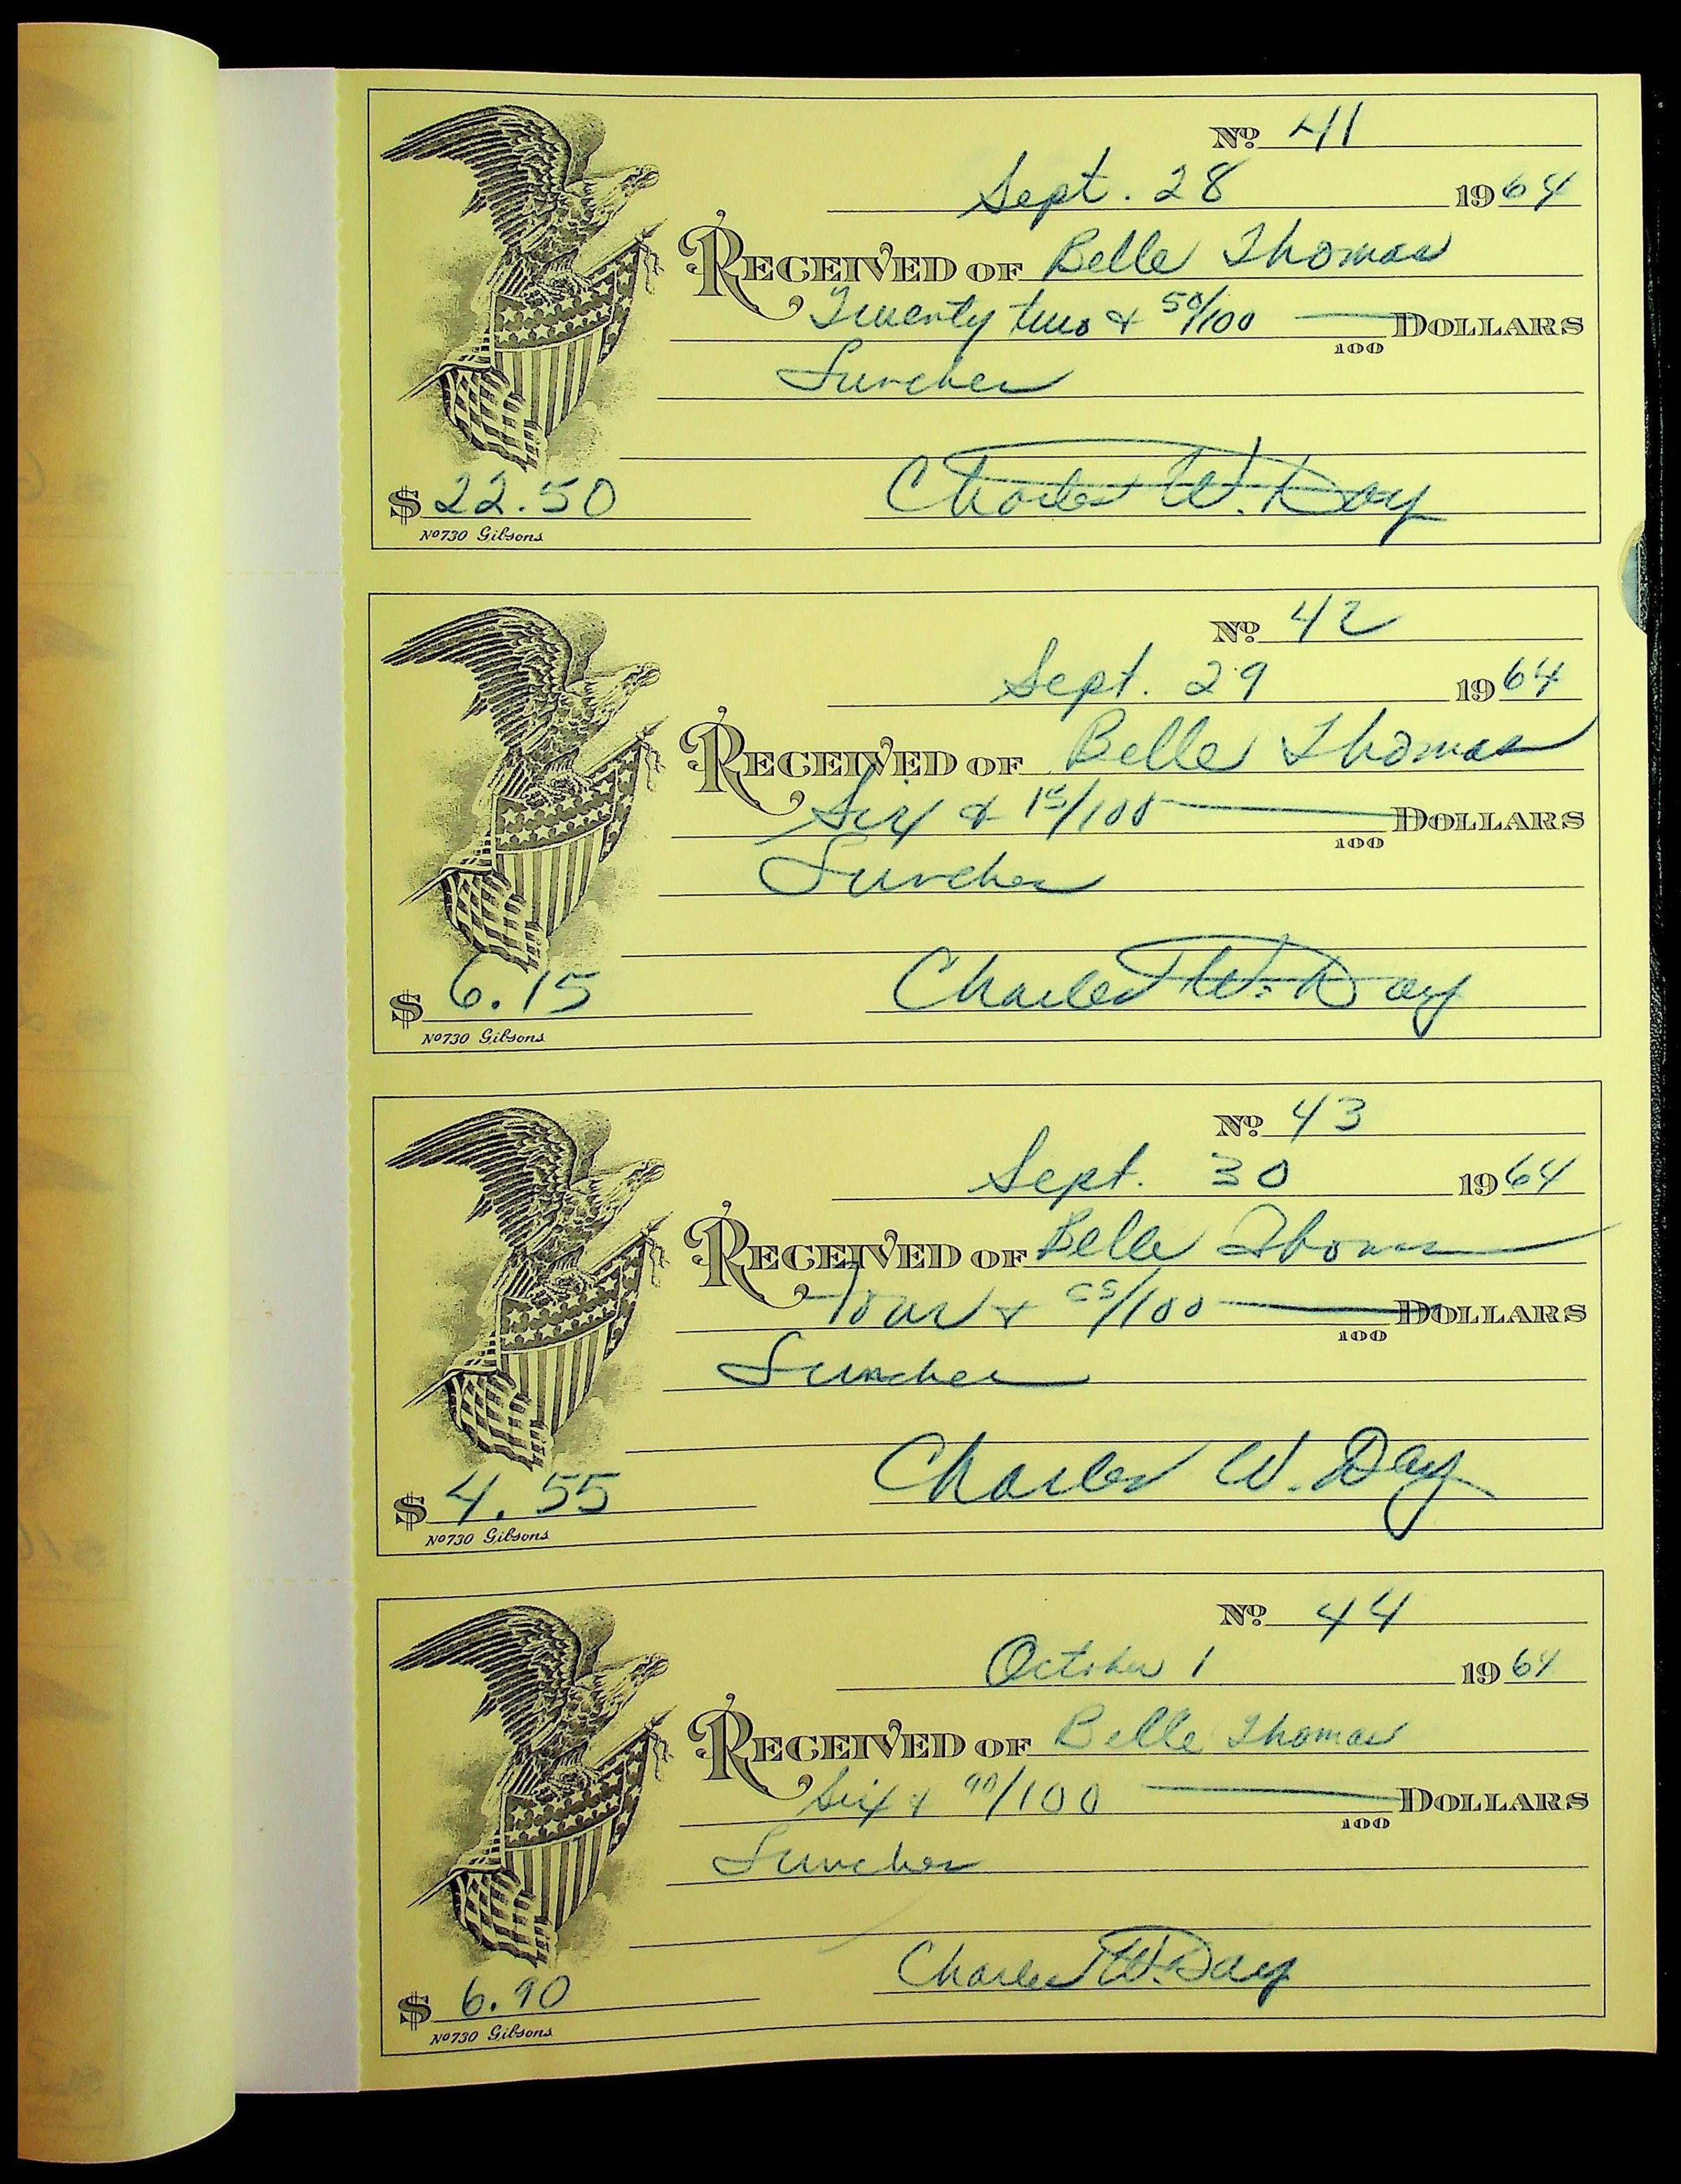 Nº 41
Sept. 28 1964
RECEIVED OF Belle Thomas
Twenty two & 50/100 DOLLARS
100
Lunches
Charles W. Day
$ 22.50
Nº730 Gibsons
Nº 42
Sept. 29 1964
RECEIVED OF Belle Thomas
Six & 15/100 DOLLARS
100
Lunches
Charles W. Day
$ 6.15
Nº730 Gibsons
Nº 43
Sept. 30 1964
RECEIVED OF Belle Thomas
Four & 55/100 DOLLARS
100
Lunches
Charles W. Day
$ 4.55
Nº730 Gibsons
Nº 44
October 1 1964
RECEIVED OF Belle Thomas
Six & 90/100 DOLLARS
100
Lunches
Charles W. Day
$ 6.90
Nº730 Gibsons